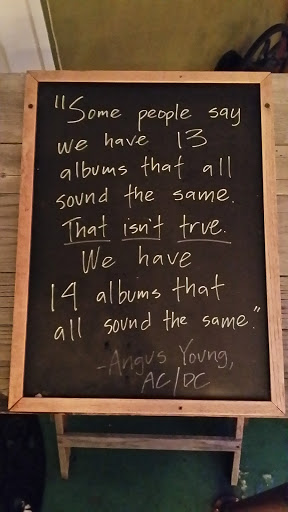 "Some people say
we have 13
albums that all
sound the same.
That isn't true.
We have
14 albums that
all sound the same."
-Angus Young,
AC/DC